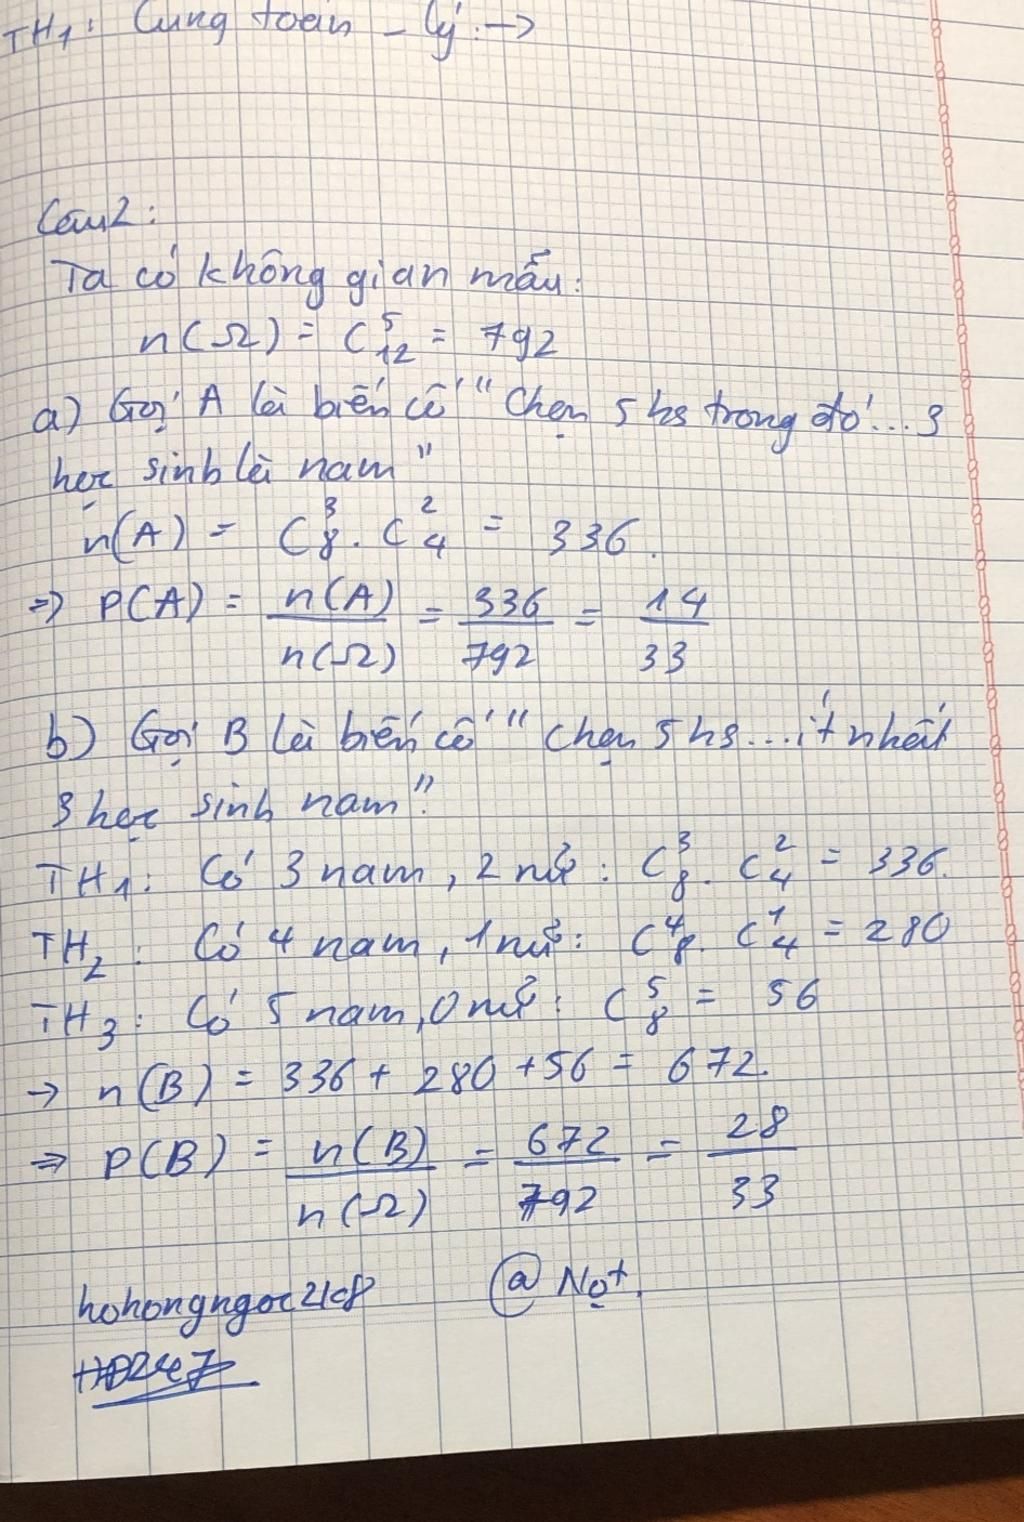 TH₁: Cùng toán - lý: →
Câu 2:
Ta có không gian mẫu:
n(Ω) = C⁵₁₂ = 792
a) Gọi A là biến cố "Chọn 5 hs trong đó ... 3
học sinh là nam"
n(A) = C³₈ . C²₄ = 336.
⇒ P(A) = n(A)/n(Ω) = 336/792 = 14/33
b) Gọi B là biến cố "chọn 5 hs ... ít nhất
3 học sinh nam".
TH₁: Có 3 nam, 2 nữ: C³₈ . C²₄ = 336.
TH₂: Có 4 nam, 1 nữ: C⁴₈ . C¹₄ = 280
TH₃: Có 5 nam, 0 nữ: C⁵₈ = 56
→ n(B) = 336 + 280 + 56 = 672.
⇒ P(B) = n(B)/n(Ω) = 672/792 = 28/33
@ Nọt.